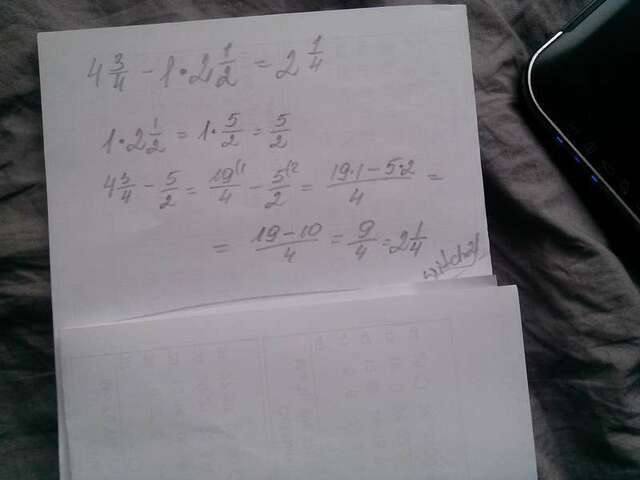 4 3/4 - 1 • 2 1/2 = 2 1/4
1 • 2 1/2 = 1 • 5/2 = 5/2
4 3/4 - 5/2 = 19/4 (1 - 5/2 (2 = 19•1 - 5•2/4 =
= 19-10/4 = 9/4 = 2 1/4